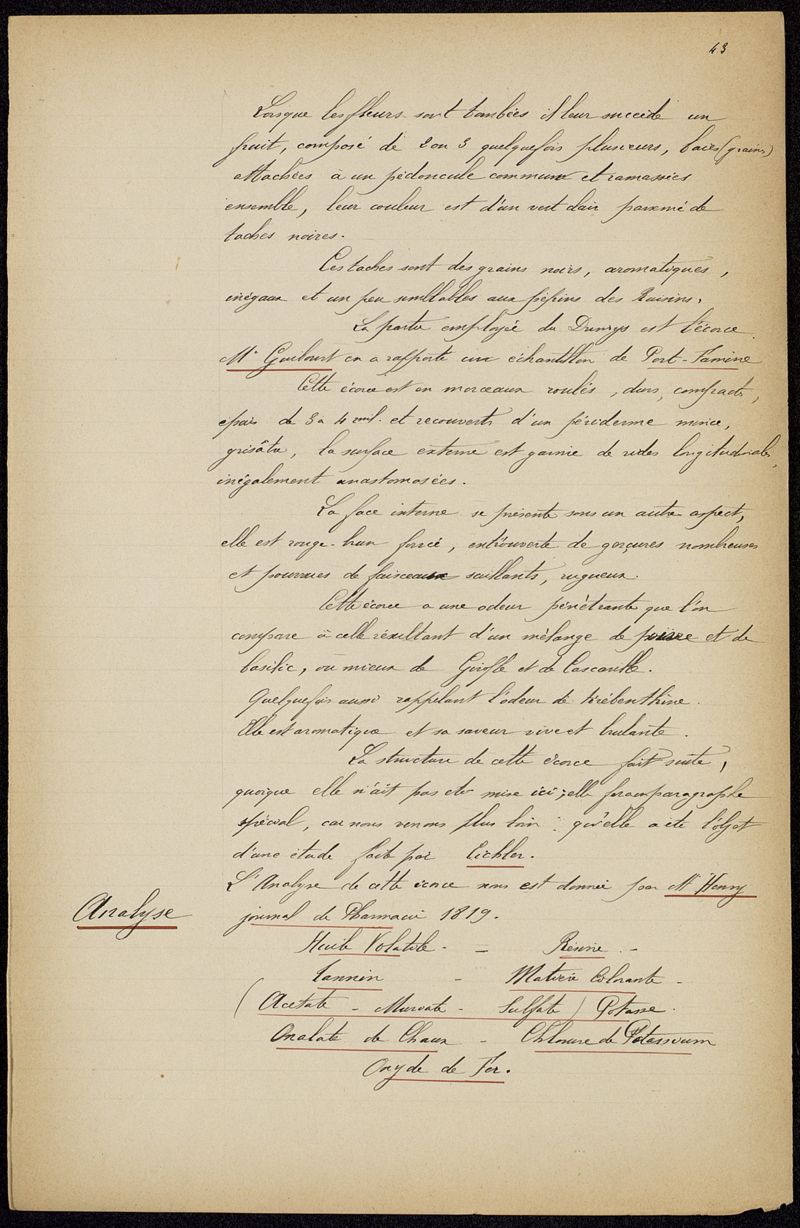 43
Lorsque les fleurs sont tombées il leur succède un
fruit, composé de 2 ou 3 quelquefois plusieurs, baies (grains)
attachées à un pédoncule commun et ramassées
ensemble, leur couleur est d'un vert clair parsemé de
taches noires.
Ces taches sont des grains noirs, aromatiques,
inégaux et un peu semblables aux pépins des Raisins.
La partie employée du Drimys est l'écorce.
Mr Guibourt en a rapporté un échantillon de Port-Famine
Cette écorce est en morceaux roulés, durs, compacts,
épais de 3 à 4 mill. et recouverts d'un périderme mince,
grisâtre, la surface externe est garnie de rides longitudinales,
inégalement anastomosées.
La face interne se présente sous un autre aspect,
elle est rouge-brun foncé, entrouverte de gerçures nombreuses
et pourvues de faisceaux saillants, rugueux.
Cette écorce a une odeur pénétrante que l'on
compare à celle résultant d'un mélange de poivre et de
basilic, ou mieux de Girofle et de Cascarille.
Quelquefois aussi rappelant l'odeur de térébenthine.
Elle est aromatique et sa saveur vive et brulante.
La structure de cette écorce fait suite,
quoique elle n'ait pas été mise ici, elle fera un paragraphe
spécial, car nous verrons plus loin qu'elle a été l'objet
d'une étude faite par Eichler.
L'Analyse de cette écorce nous est donnée par Mr Henry
Analyse
journal de Pharmacie 1819.
Huile Volatile - - Résine -
Tannin - Matière Colorante -
(Acétate - Muriate - Sulfate) Potasse.
Oxalate de Chaux - Chlorure de Potassium
Oxyde de Fer.